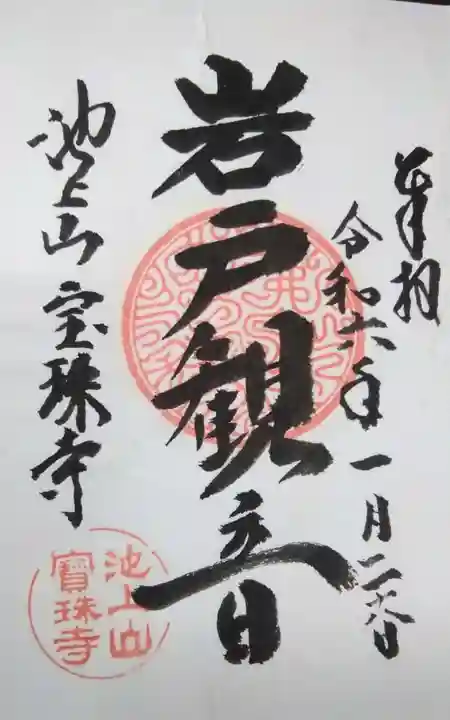 奉拝
令和六年一月二六日
岩戸観音
池上山宝珠寺
池上山
寶珠寺